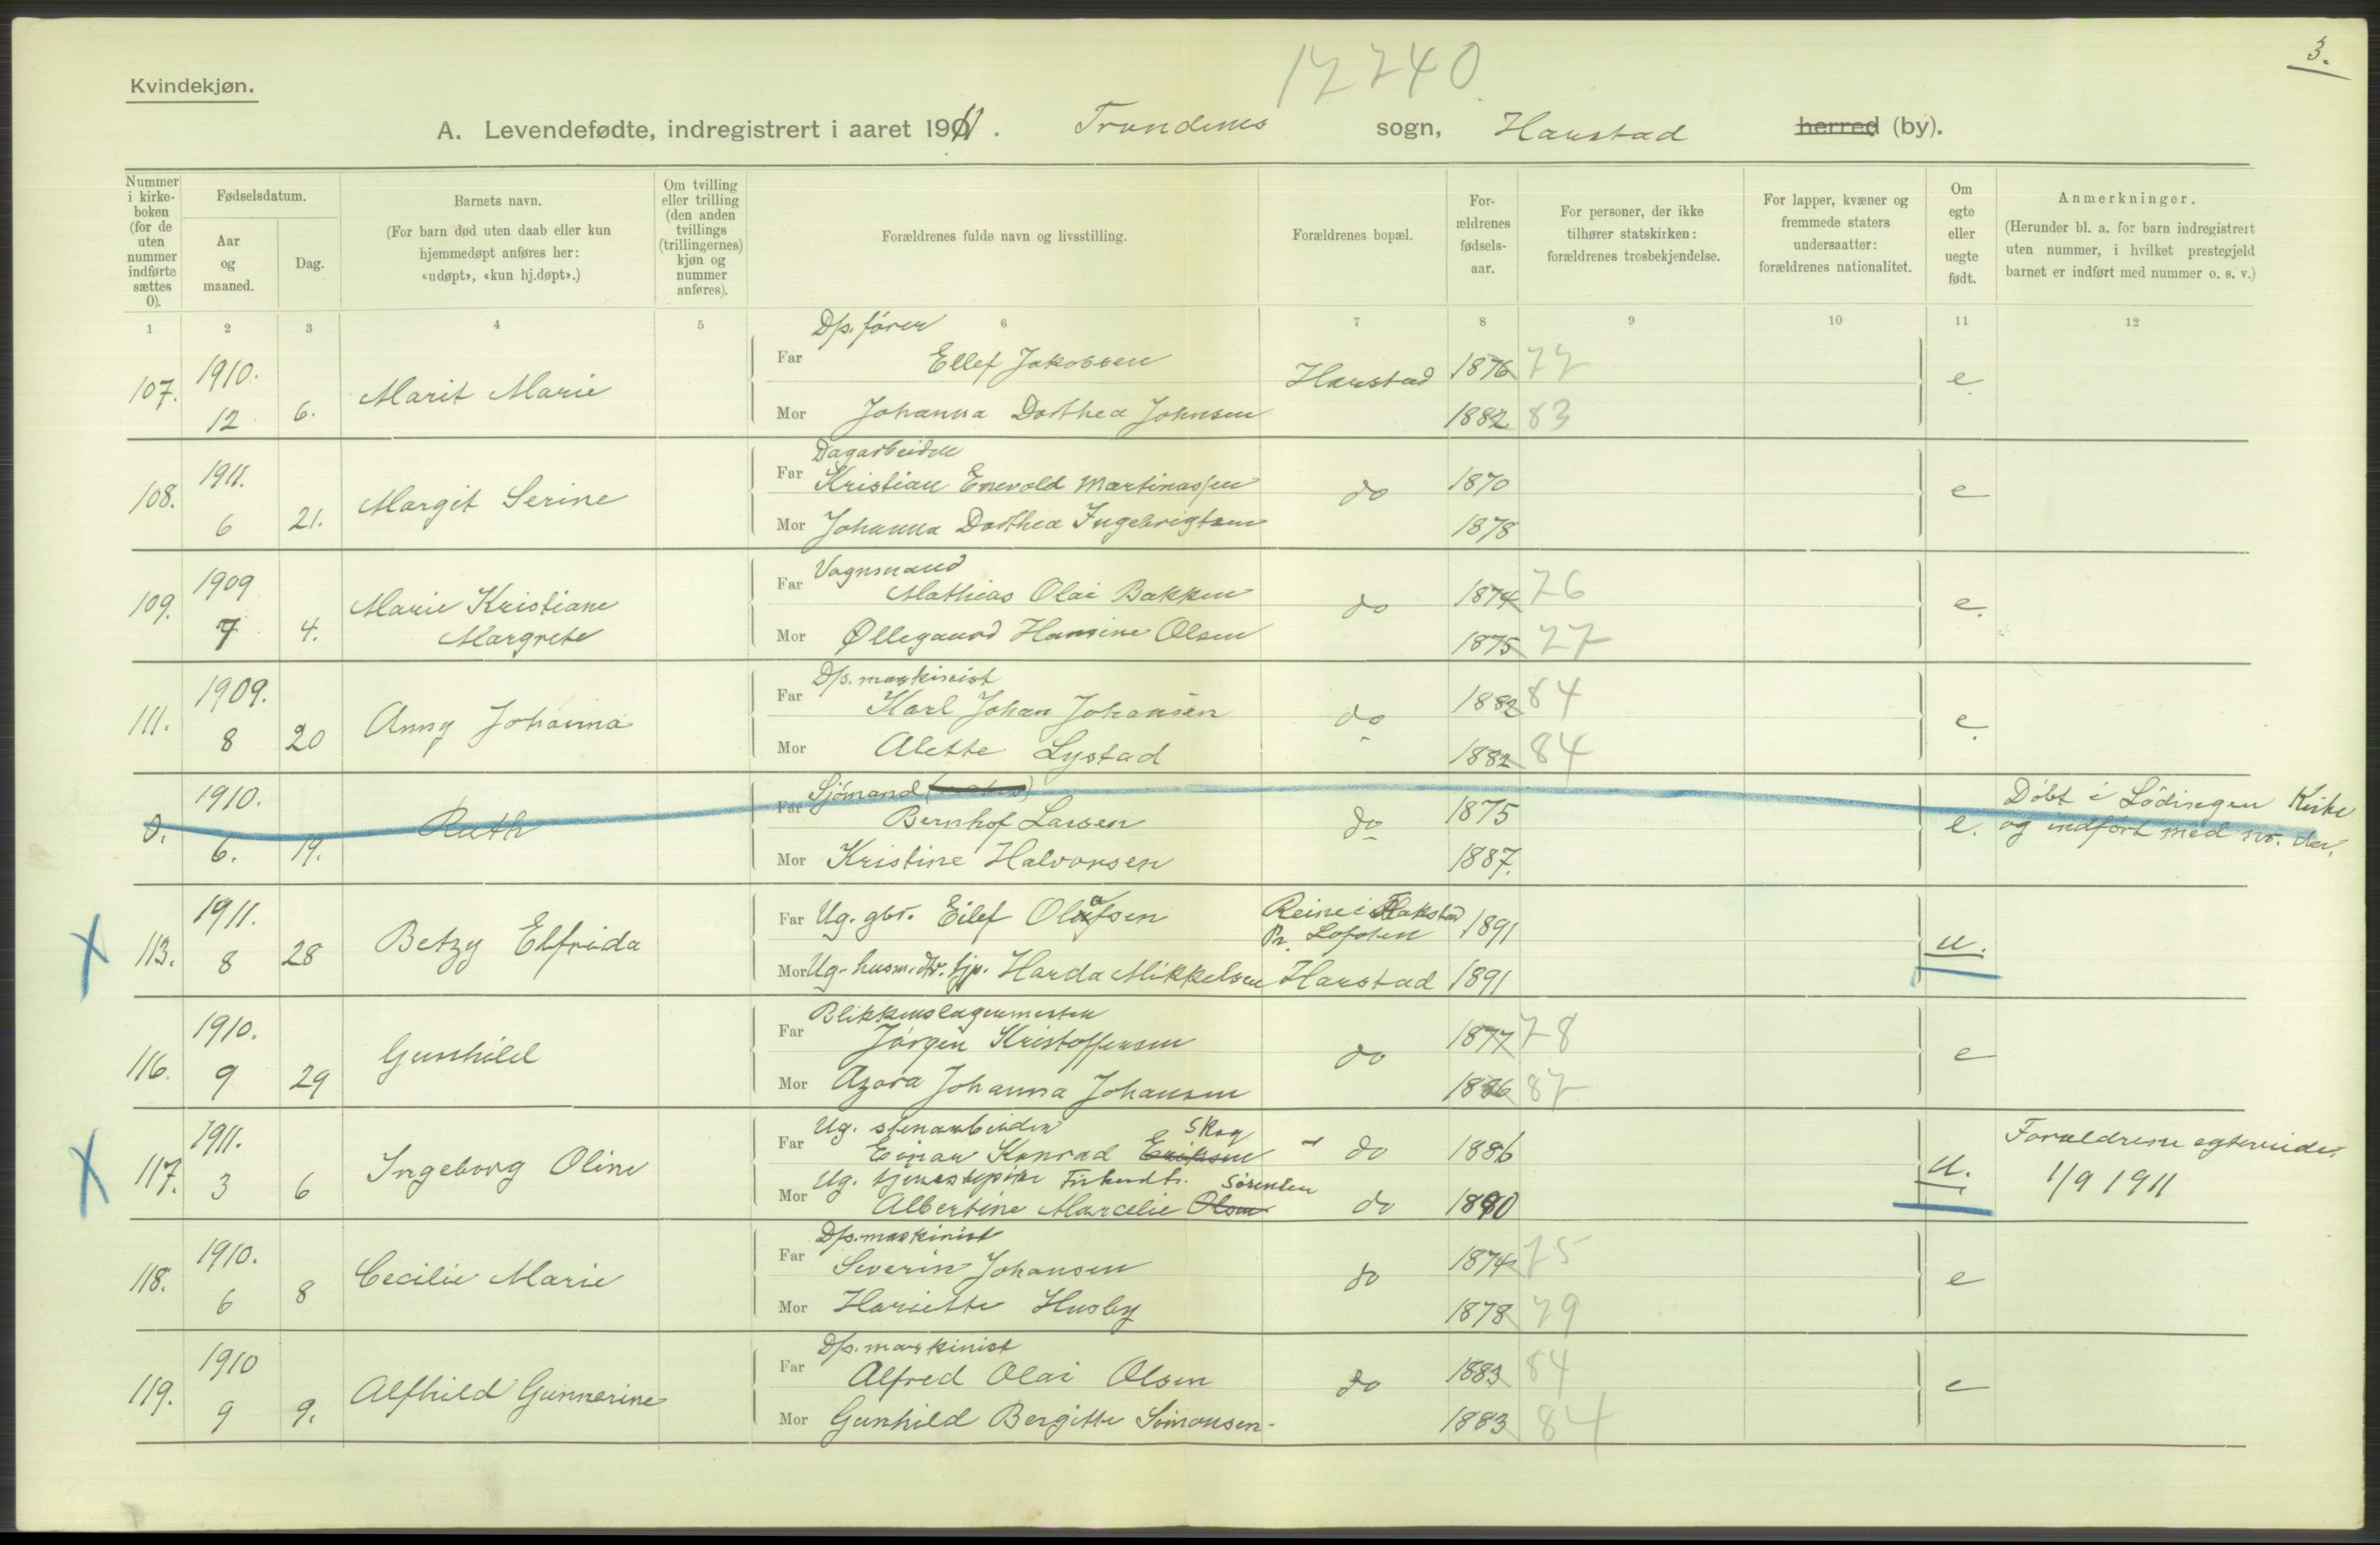 3.
12240
Kvindekjøn.
A. Levendefødte, indregistrert i aaret 1911. Trondenes sogn, Harstad herred (by).
Nummer i kirkeboken (for de uten nummer indførte sættes 0).
Fødselsdatum.
Aar og maaned.
Dag.
Barnets navn.
(For barn død uten daab eller kun hjemmedøpt anføres her: «udøpt», «kun hj.døpt».)
Om tvilling eller trilling (den anden tvillings (trillingernes) kjøn og nummer anføres).
Forældrenes fulde navn og livsstilling.
Forældrenes bopæl.
For-ældrenes fødsels-aar.
For personer, der ikke tilhører statskirken: forældrenes trosbekjendelse.
For lapper, kvæner og fremmede staters undersaatter: forældrenes nationalitet.
Om egte eller uegte født.
Anmerkninger.
(Herunder bl. a. for barn indregistrert uten nummer, i hvilket prestegjeld barnet er indført med nummer o. s. v.)
1 2 3 4 5 6 7 8 9 10 11 12
107. 1910. 12 6. Marit Marie
Dps. fører
Far Ellef Jakobsen Harstad 1876 77 e
Mor Johanna Dorthea Johnsen 1882 83
108. 1911. 6 21. Margit Serine
Dagarbeider
Far Kristian Enevold Martinassen do 1870 e
Mor Johanna Dorthea Ingebrigtsen 1878
109. 1909 7 4. Marie Kristiane Margrete
Vognmand
Far Mathias Olai Bakken do 1874 76 e.
Mor Øllegaard Hansine Olsen 1875 77
111. 1909. 8 20 Anny Johanna
Dps. maskinist
Far Karl Johan Johansen do 1882 84 e.
Mor Alette Lystad 1882 84
0. 1910. 6. 19. Ruth
Sjömand
Far Bernhof Larsen do 1875 e. Döbt i Lödingen Kirke
og indført med nr. der.
Mor Kristine Halvorsen 1887.
113. 1911. 8 28 Betzy Elfrida
Far Ug. gbr. Eilef Olafsen Reine i Flakstad Pr. Lofoten 1891 u.
Mor Ug. husm.dtr. tjp. Harda Mikkelsen Harstad 1891
116. 1910. 9 29 Gunhild
Blikkenslagermester
Far Jörgen Kristoffersen do 1877 78 e
Mor Azora Johanna Johansen 1886 87
117. 1911. 3 6 Ingeborg Oline
Ug. stenarbeider Skog
Far Einar Konrad Eriksen do 1886 u. Forældrene egteviede
1/9 1911
Ug. tjenestepike Sörensen
Mor Albertine Marcelie Olsen do 1890
118. 1910. 6 8 Cecilie Marie
Dps. maskinist
Far Severin Johansen do 1874 75 e
Mor Hariette Husby 1878 79
119. 1910 9 9. Alfhild Gunnarine
Dps. maskinist
Far Alfred Olai Olsen do 1883 84 e
Mor Gunhild Bergitte Simonsen 1883 84